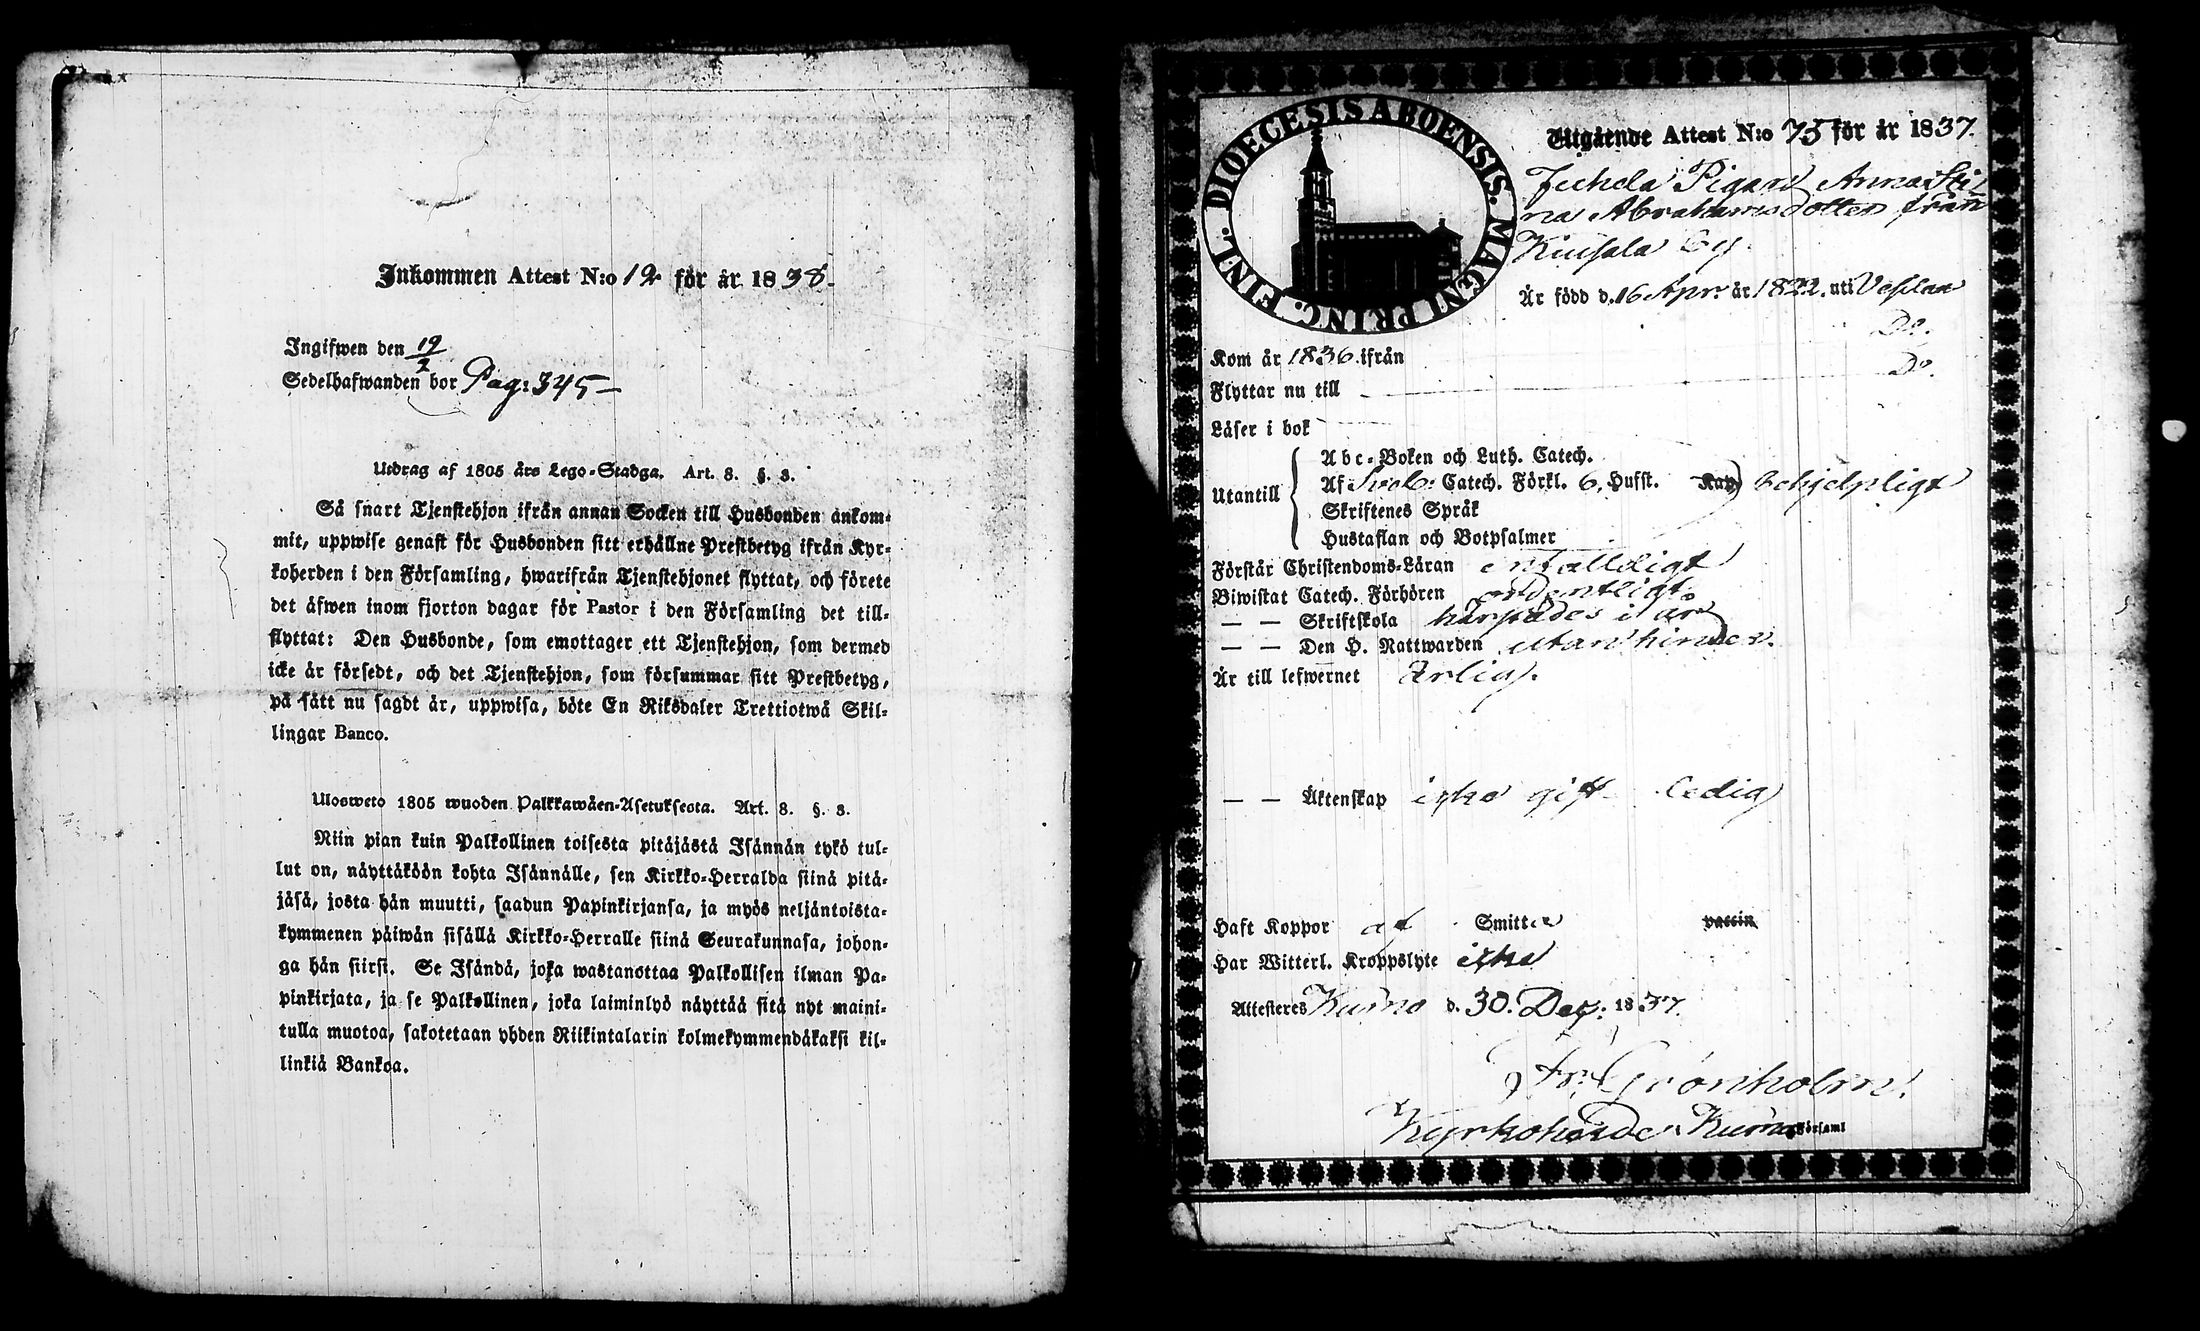 Inkommen Attest N:o 12 för år 1838.
Ingifwen den 19/2
Sedelhafwanden bor Pag: 345 –
Utdrag af 1805 års Lego-Stadga. Art. 8. §. 3.
Så snart Tjenstehjon ifrån annan Socken till Husbonden ankom-
mit, uppwise genast för Husbonden sitt erhållne Prestbetyg ifrån Kyr-
koherden i den Församling, hwarifrån Tjenstehjonet flyttat, och förete
det äfwen inom fjorton dagar för Pastor i den Församling det till-
flyttat: Den Husbonde, som emottager ett Tjenstehjon, som dermed
icke är försedt, och det Tjenstehjon, som försummar sitt Prestbetyg,
på sätt nu sagdt är, uppwisa, böte En Riksdaler Trettiotwå Skil-
lingar Banco.
Ulosweto 1805 wuoden Palkkawäen-Asetuksesta. Art. 8. §. 3.
Niin pian kuin Palkollinen toisesta pitäjästä Isännän tykö tul-
lut on, näyttäköön kohta Isännälle, sen Kirkko-Herralda siinä pitä-
jäsä, josta hän muutti, saadun Papinkirjansa, ja myös neljäntoista-
kymmenen päiwän sisällä Kirkko-Herralle siinä Seurakunnasa, johon-
ga hän siirsi. Se Isändä, joka wastanottaa Palkollisen ilman Pa-
pinkirjata, ja se Palkollinen, joka laiminlyö näyttää sitä nyt maini-
tulla muotoa, sakotetaan yhden Riikintalarin kolmekymmendäkaksi kil-
linkiä Bankoa.
DIOECESIS ABOENSIS. MAGNI PRINC. FINL.
Utgående Attest N:o 75 för år 1837.
Juhela Pigan Anna Sti
na Abrahamsdotter från
by
Är född d. 16 Apr. år 1822. uti
Do.
Kom år 1836. ifrån
Do.
Flyttar nu till
Läser i bok
Abc-Boken och Luth. Catech.
Utantill Af Catech. Förkl. 6, Husst. behjelpligt
Skriftenes Språk
Hustaflan och Botpsalmer
Förstår Christendoms-Läran enfalldigt
Biwistat Catech. Förhören ordentligt
— — Skriftskola härstädes i år
— — Den H. Nattwarden utan hinder.
Är till lefwernet Ärlig.
— — Äktenskap icke gift. Ledig
Haft Koppor af Smitta vaccin
Har Witterl. Kroppslyte icke
Attesteres Kumo d. 30. Dec. 1837.
Fr. Grönholm.
Kyrkoherde i Kumo Församl